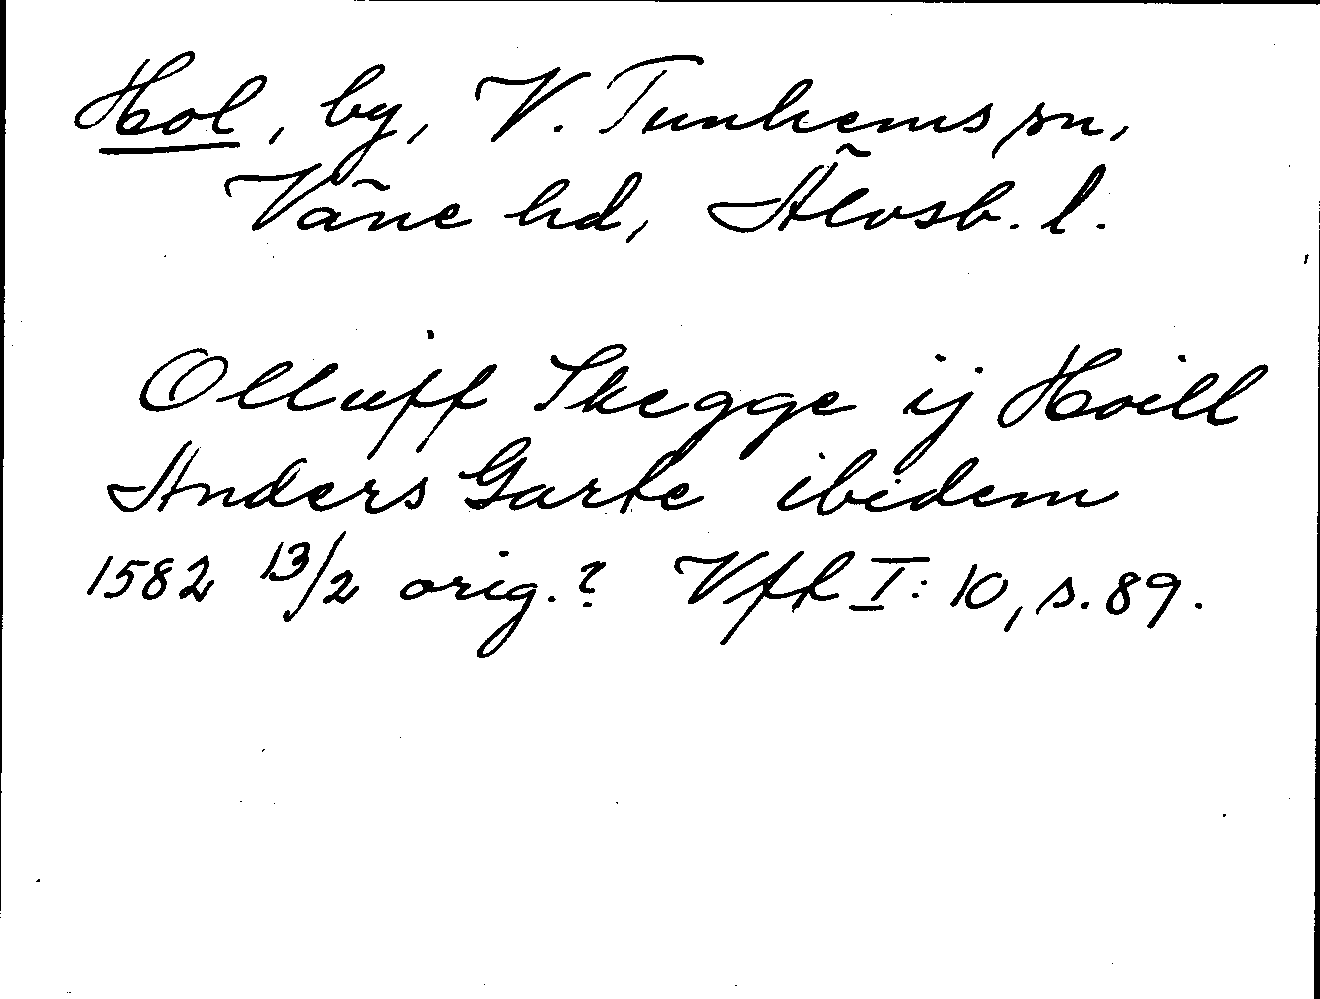 Hol, by, V. Tunhems sn,
Väne hd, Älvsb. l.
Olluff Skegge ij Hoill
Anders Garke ibidem
1582 13/2 orig.? Vfh I: 10, s. 89.